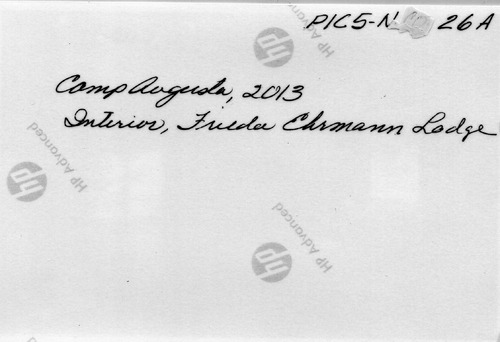 PIC5-N 26A
Camp Augusta, 2013
Interior, Frieda Ehrmann Lodge
HP Advanced
hp
HP Advanced
hp
HP Advanced
hp